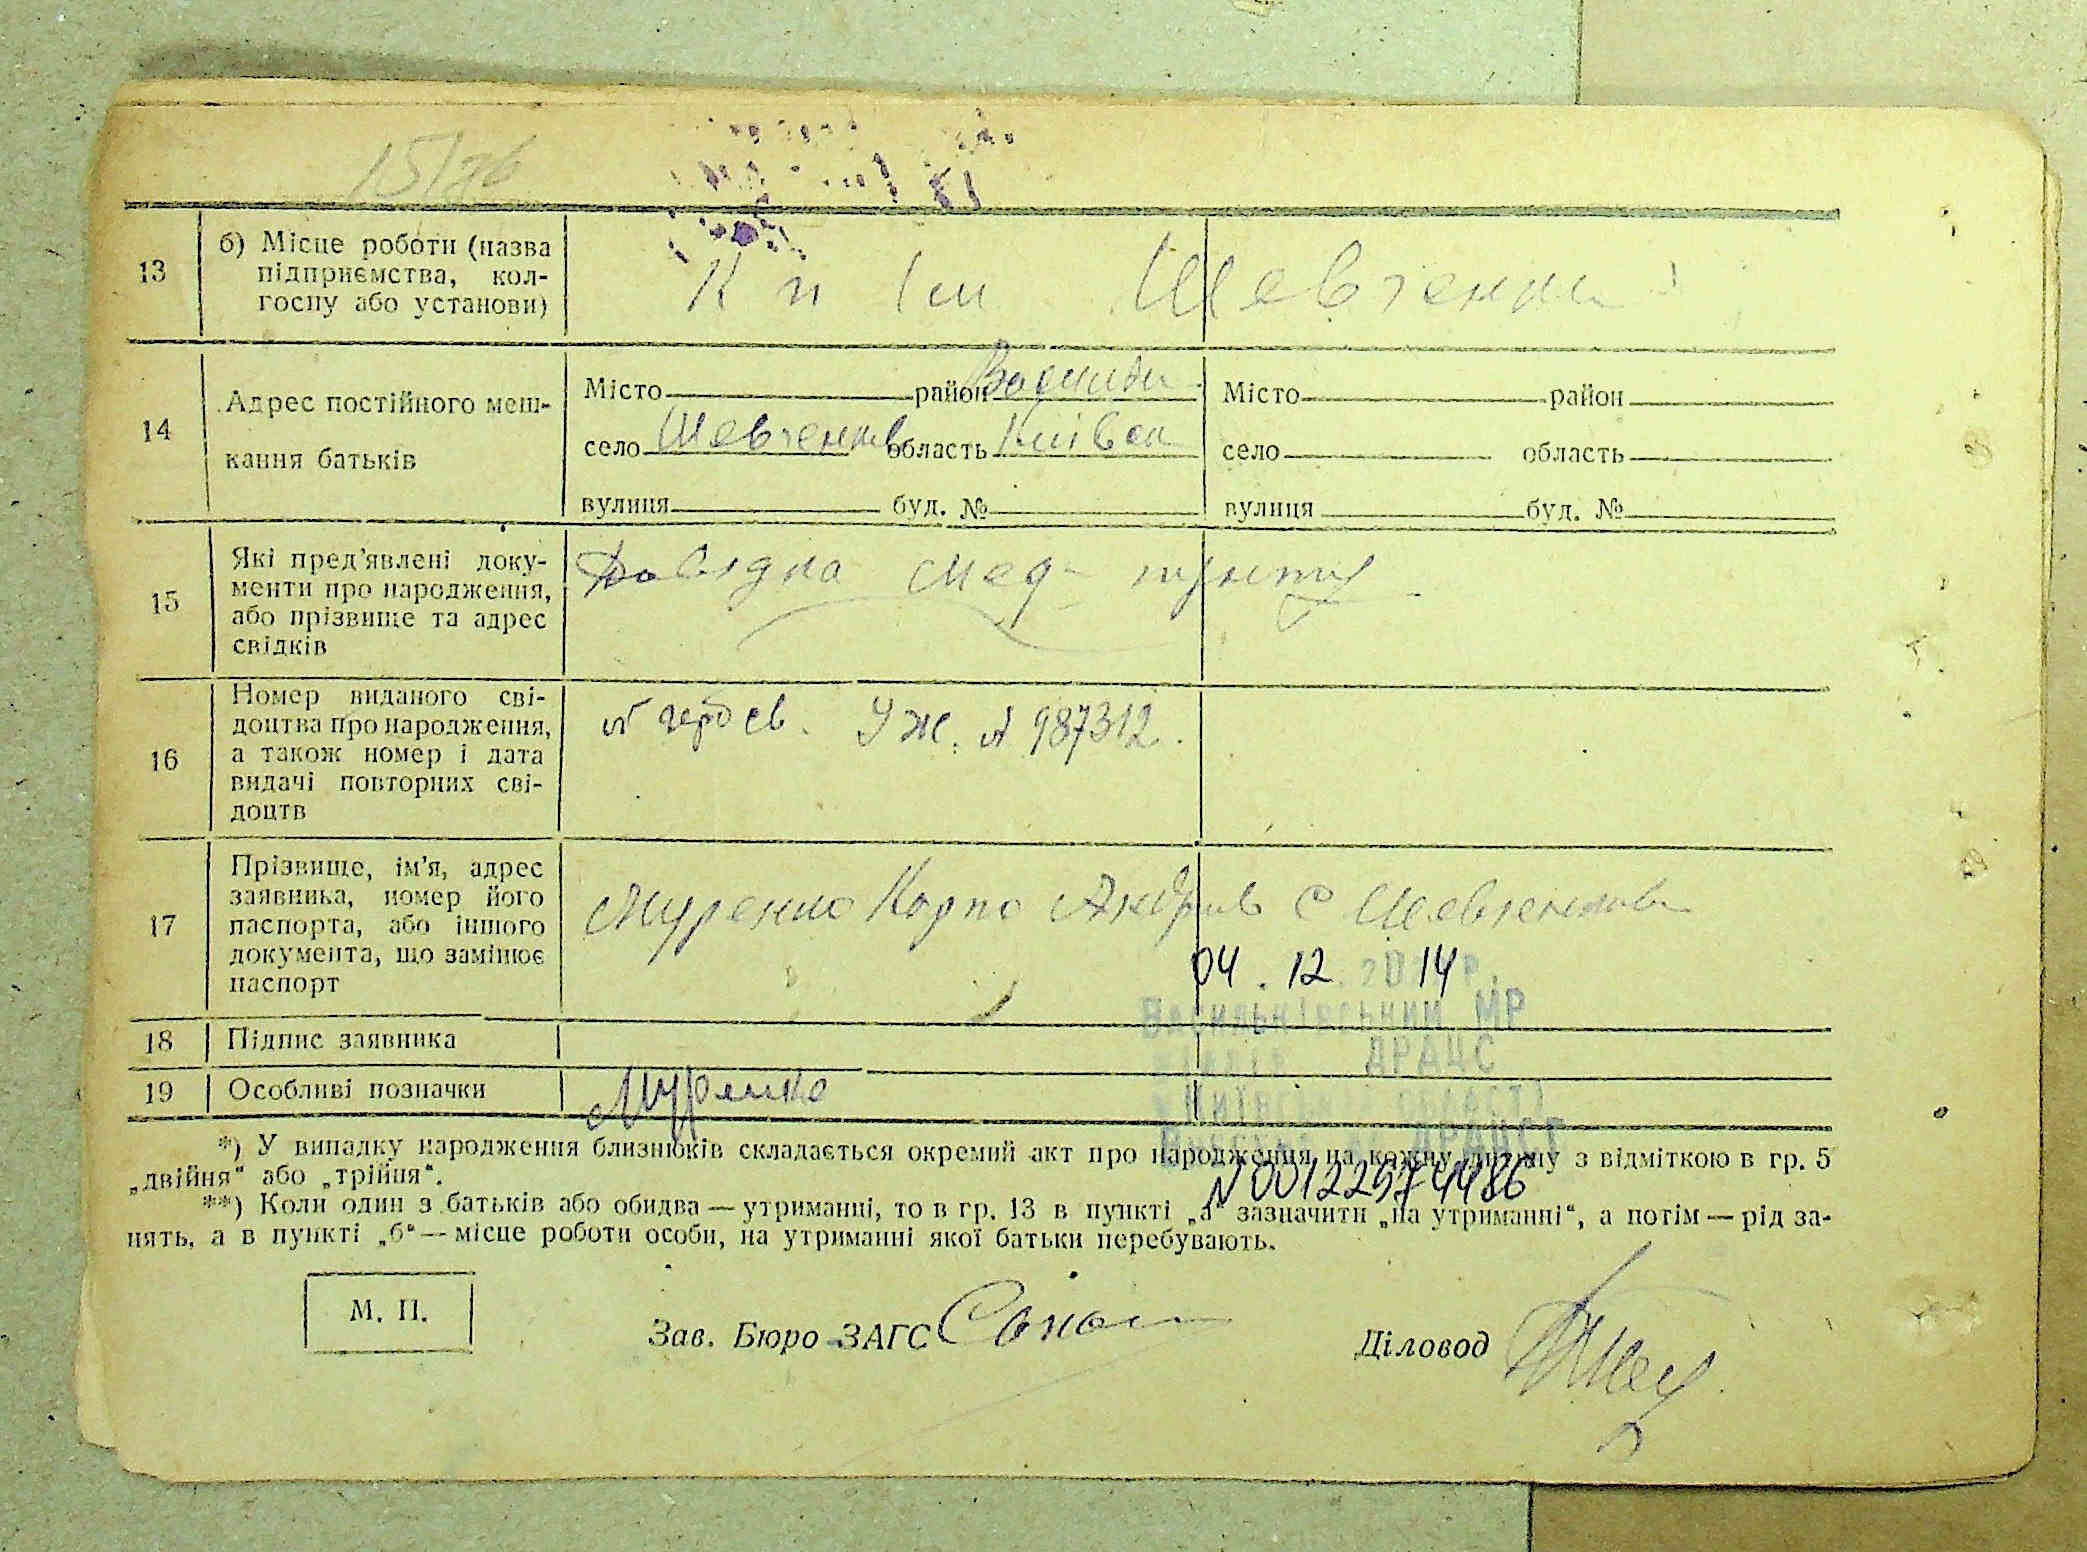 15/
13
б) Місце роботи (назва
підприємства, кол-
госпу або установи)
К п Ім Шевченка
14
Адрес постійного меш-
кання батьків
Місто район
село Шевченків область Київск
вулиця буд. №
Місто район
село область
вулиця буд. №
15
Які пред’явлені доку-
менти про народження,
або прізвище та адрес
свідків
Довідка мед
16
Номер виданого сві-
доцтва про народження,
а також номер і дата
видачі повторних сві-
доцтв
УЖ. № 987312.
17
Прізвище, ім’я, адрес
заявника, номер його
паспорта, або іншого
документа, що замінює
паспорт
Муренко Карпо Андрив с Шевченкове
04.12.2014 р.
Васильківський МР
ДРАЦС
Київської області
ДРАЦСГ
N 00122974486
18
Підпис заявника
19
Особливі позначки
Муренко
*) У випадку народження близнюків складається окремий акт про народження на кожну дитину з відміткою в гр. 5
„двійня“ або „трійня“.
**) Коли один з батьків або обидва — утриманці, то в гр. 13 в пункті „а“ зазначити „на утриманні“, а потім — рід за-
нять, а в пункті „б“ — місце роботи особи, на утриманні якої батьки перебувають.
М. П.
Зав. Бюро ЗАГС
Діловод